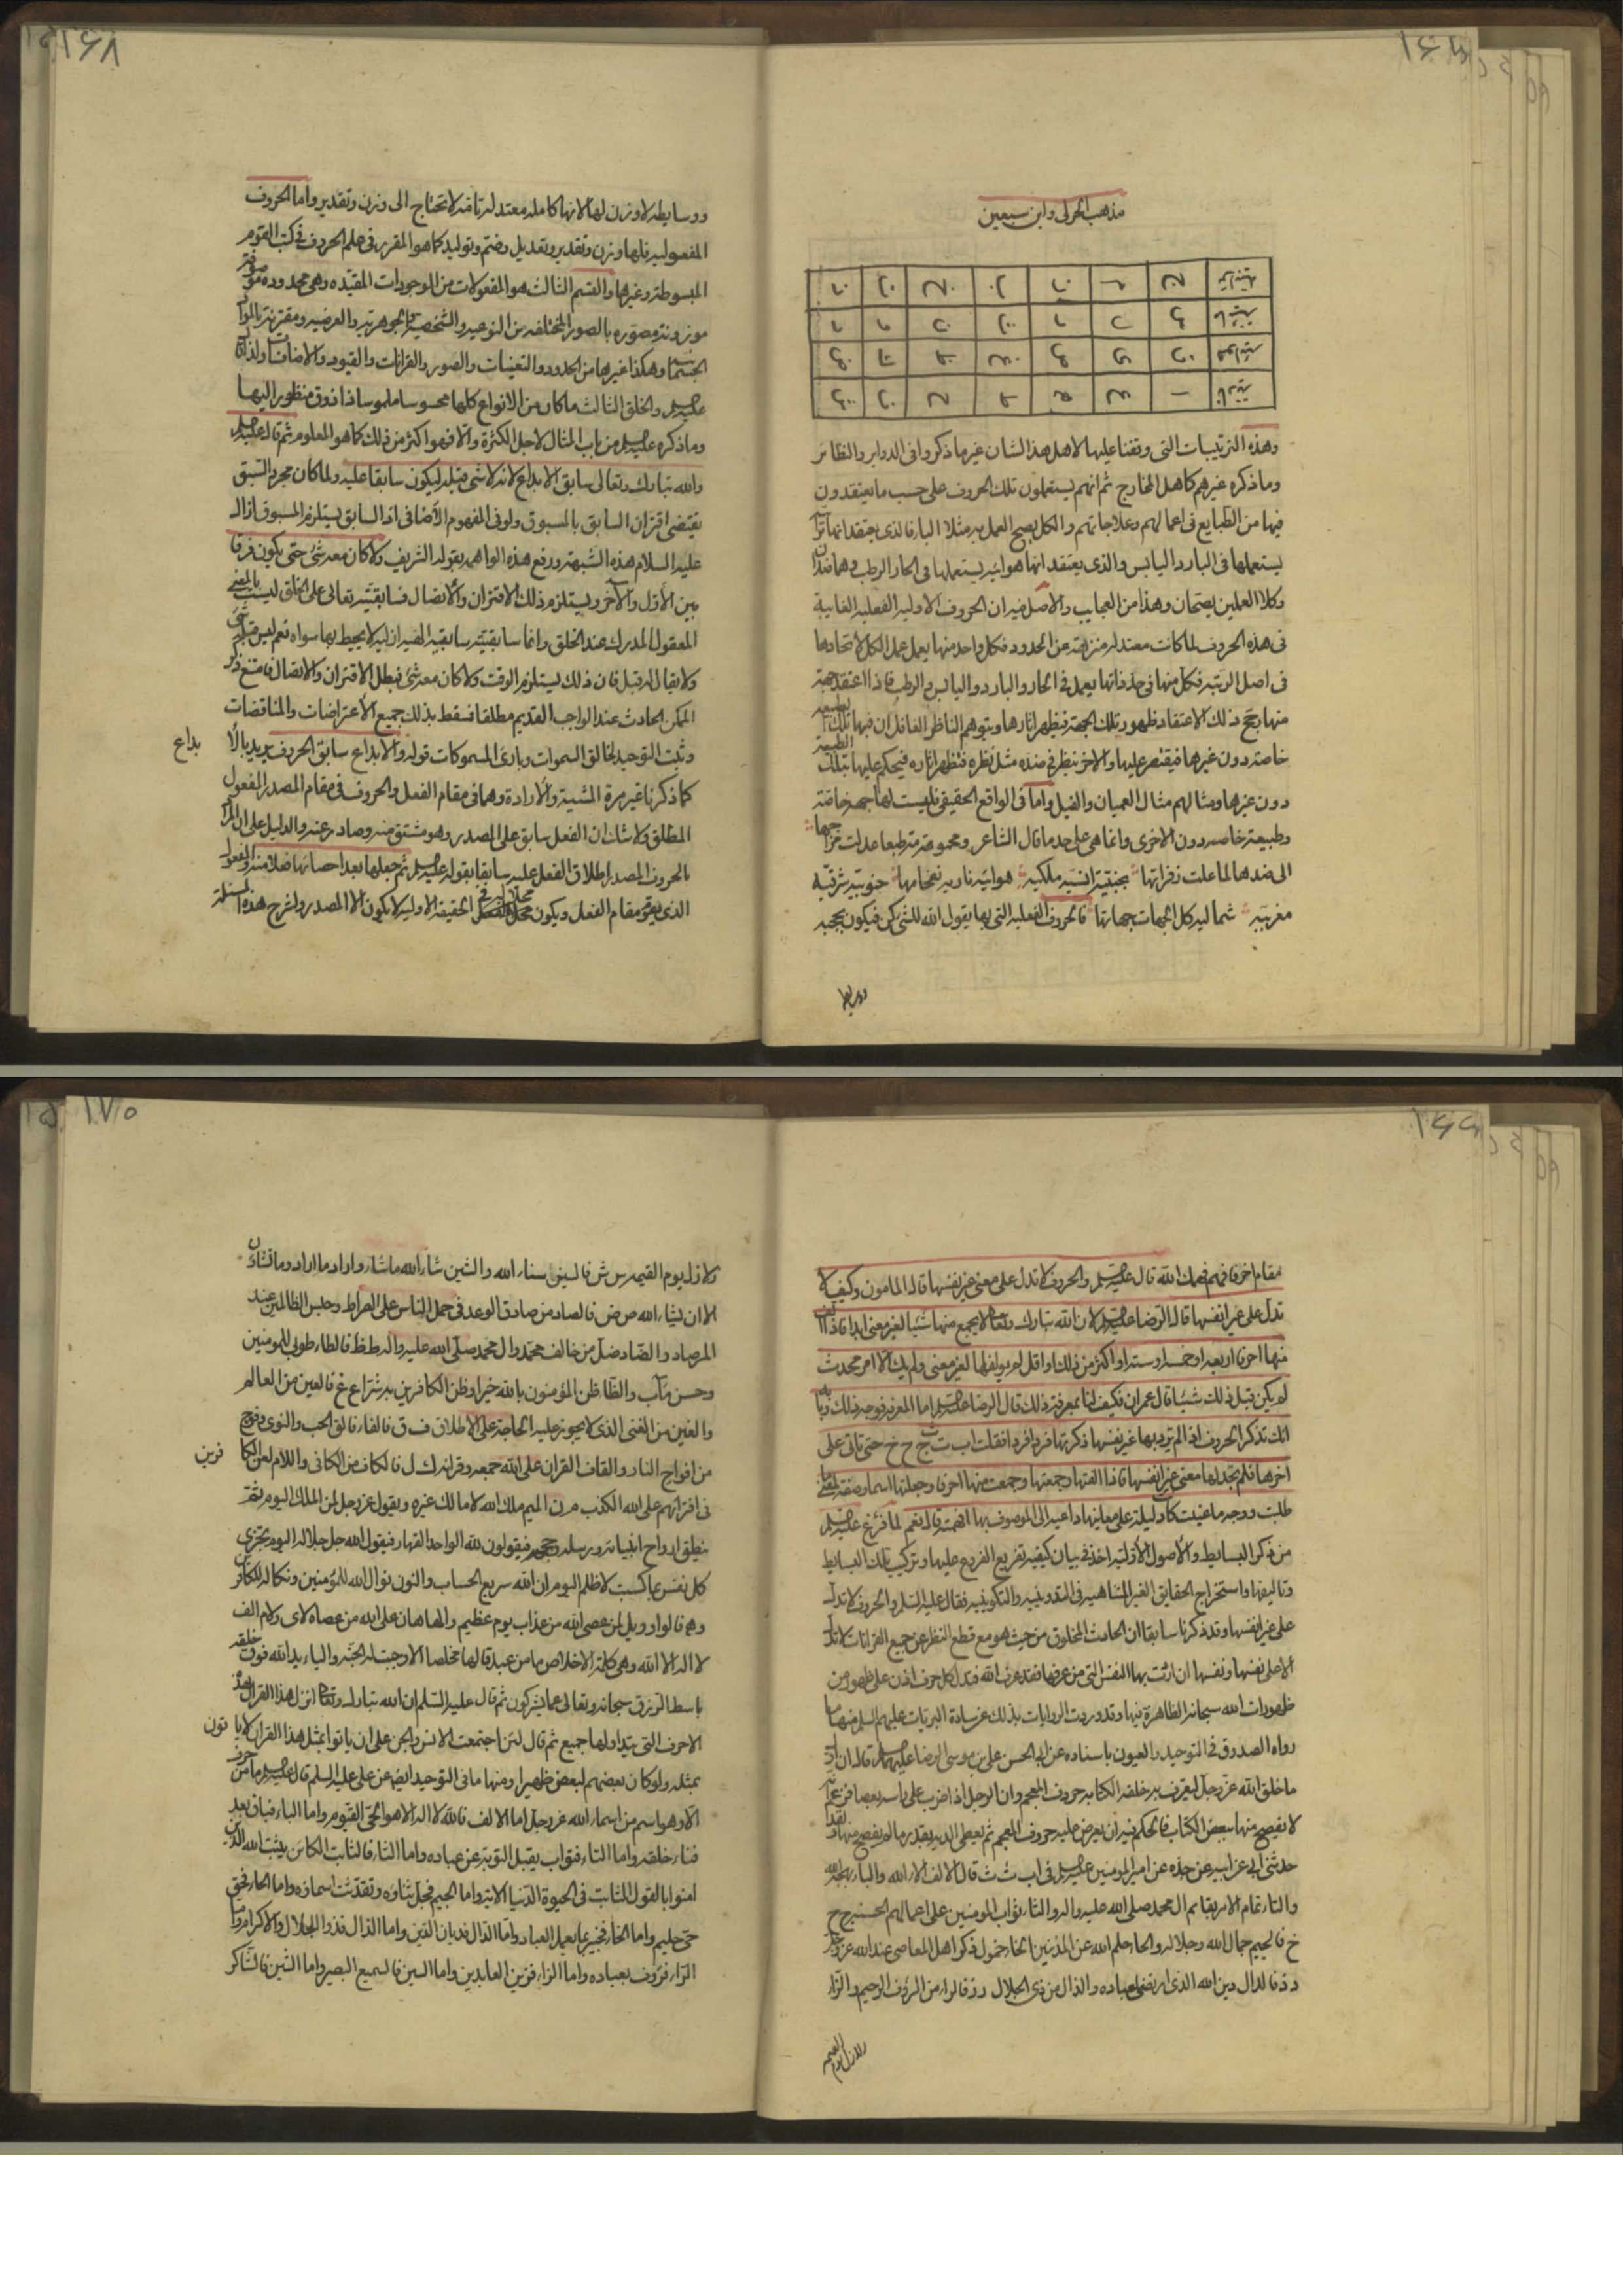 ١٦٨
مذهب الحرلى وابن سبعين
وهذه الترتيبات التى وقفنا عليها لاهل هذا الشان غير ما ذكروا فى الدواير والنظائر
وما ذكره غيرهم كاهل المخارج ثم انهم يستعملون تلك الحروف على حسب ما يعتقدون
فيها من الطبايع فى اعمالهم وعلاجاتهم والكل يصح العمل به مثلا الباء فالذى يعتقد انها
يستعملها فى البارد اليابس والذى يعتقد انها هوائية يستعملها فى الحار الرطب وهما ضدان
وكلا العملين يصحان وهذا من العجايب والاصل فيه ان الحروف الاولية الفعلية الغايبة
فى هذه الحروف لما كانت معتدلة منزهة عن الحدود فكل واحد منها يعمل عمل الكل لاتحادها
فى اصل الرتبة فكل منها فى حد ذاتها يعمل فى الحار والبارد واليابس والرطب فاذا اعتقد جهة
منها رجح ذلك الاعتقاد ظهور تلك الجهة فيظهر اثارها ويتوهم الناظر الغافل ان فيها تلك الطبيعة
خاصة دون غيرها فيقتصر عليها والاخر ينظر فى ضده مثل نظره فتظهر اثاره فيحكم عليها بتلك الطبيعة
دون غيرها ومثالهم مثال العميان والفيل واما فى الواقع الحقيقى فليست لها جهة خاصة
وطبيعة خاصة دون الاخرى وانما هى على حد ما قال الشاعر
الى ضدها لما علت زفراتها بجنتية انسية ملكية هوائية نارية نفحاتها جنوبية شرقية
مغربية شمالية كل الجهات جهاتها فالحروف الفعلية التى بها يقول الله للشئ كن فيكون
ووسايطه لا وزن لها لانها كاملة معتدلة تامة لا تحتاج الى وزن وتقدير واما الحروف
المفعولية فلها وزن وتقدير وتعديل وضم وتوليد كما هو المقرر فى علم الحروف فى كتب القوم
المبسوطة وغيرها والقسم الثالث هو المفعولات من الموجودات المقيدة وهى محدودة
موزونة مصورة بالصور المختلفة من النوعية والشخصية والجوهرية والعرضية ومقترنة
وهكذا غيرها من الحدود والتعينات والصور والقرانات والقيود والاضافات ولذا قال
عليه السلام والخلق الثالث ما كان من الانواع كلها محسوسا ملموسا ذا ذوق منظور اليها
وما ذكره عليه السلام من باب المثال لاجل الكثرة والا فهو اكثر من ذلك كما هو المعلوم ثم قال عليه السلام
والله تبارك وتعالى سابق الابداع لانه لا شئ قبله ليكون سابقا عليه ولما كان مجرد السبق
يقتضى اقتران السابق بالمسبوق ولو فى المفهوم الاضافى اذ السابق يستلزم المسبوق ازال
عليه السلام هذه الشبهة ورفع هذه الواهمة بقوله الشريف ولا كان معه شئ حتى يكون فرقا
بين الاول والاخر ويستلزم ذلك الاقتران والاتصال فسابقيته تعالى على الخلق ليست بالمعنى
المعقول المدرك عند الخلق وانما سابقيته سابقية لا يحيط بها سواه نعم ليس قبله شئ
ولا يقال له قبل فان ذلك يستلزم الوقت ولا كان معه شئ فبطل الاقتران والاتصال فامتنع ذكر
الممكن الحادث عند الواجب القديم مطلقا فسقط بذلك جميع الاعتراضات والمناقضات
وثبت التوحيد لخالق السموات وبارئ المسموكات قوله والابداع سابق الحروف يريد بالا
بداع
كما ذكرنا غير مرة المشية والارادة وهما فى مقام الفعل والحروف فى مقام المصدر المفعول
المطلق ولا شك ان الفعل سابق على المصدر وهو مشتق منه وصادر عنه والدليل على ان المراد
بالحروف المصدر اطلاق الفعل عليه سابقا بقوله عليه السلام ثم جعلها بعد احصائها فعلا منه والمفعول
الذى يقوم مقام الفعل ويكون الحقيقة الاولية لا يكون الا المصدر ولشرح هذه المسئلة
١٧٠
مقام اخر فافهم فهمك الله قال عليه السلام والحروف لا تدل على معنى غير نفسها قال المأمون وكيف لا
تدل على غير انفسها قال الرضا عليه السلام لان الله تبارك وتعالى لا يجمع منها شيئا لغير معنى ابدا فاذا الف
منها احرفا اربعة او خمسة او ستة او اكثر من ذلك او اقل لم يولفها لغير معنى ولم يك الا لامر محدث
لم يكن قبل ذلك شيئا قال عمران فكيف لنا بمعرفة ذلك قال الرضا عليه السلام اما المعرفة فوجه ذلك وبيانه
انك تذكر الحروف اذا لم ترد بها غير نفسها ذكرتها فردا فردا فقلت ا ب ت ث ج ح خ حتى تاتى على
اخرها فلم تجد لها معنى غير انفسها فاذا الفتها وجمعتها وجمعت منها احرفا وجعلتها اسما وصفة لمعنى ما
طلبت ووجه ما عنيت كانت دليلة على معانيها داعية الى الموصوف بها افهمته قال نعم لما فرغ عليه السلام
من ذكر البسايط والاصول الاولية اخذ فى بيان كيفية تفريع الفروع عليها وتركيب تلك البسايط
وتاليفها واستخراج الحقايق الغير المتناهية فى التدوينية والتكوينية فقال عليه السلم والحروف لا تدل
على غير انفسها وقد ذكرنا سابقا ان الحادث المخلوق من حيث هو مع قطع النظر عن جميع القرانات لا تدل
الا على نفسها ونفسها ان اردت بها النفس التى من عرفها فقد عرف الله فيدل كل حرف اذن على ظهور من
ظهورات الله سبحانه الظاهرة فيها وقد وردت الروايات بذلك عن سادة البريات عليهم السلم منها ما
رواه الصدوق فى التوحيد والعيون باسناده عن ابى الحسن على بن موسى الرضا عليهما السلام قال ان اول
ما خلق الله عز وجل ليعرف به خلقه الكتابة حروف المعجم وان الرجل اذا ضرب على راسه بعصا فزعم انه
لا يفصح منها ببعض الكتاب فالحكم فيه ان يعرض عليه حروف المعجم ثم يعطى الدية بقدر ما لم يفصح منها ولقد
حدثنى ابى عن ابيه عن جده عن امير المومنين عليه السلام فى ا ب ت ث قال الالف الاء الله والباء بهجة الله
والتاء تمام الامر بقائم ال محمد صلى الله عليه واله والثاء ثواب المومنين على اعمالهم الحسنة ج ح
خ فالجيم جمال الله وجلاله والحاء حلم الله عن المذنبين الخاء خمول ذكر اهل المعاصى عند الله عز وجل
د ذ فالدال دين الله الذى ارتضى لعباده والذال من ذى الجلال ر ز فالراء من الرؤف الرحيم والزاء
زلازل يوم القيمة
زلازل يوم القيمة س ش فالسين سناء الله والشين شاء الله ما شاء واراد ما اراد وما تشاؤن
الا ان يشاء الله ص ض فالصاد من صادق الوعد فى حمل الناس على الصراط وحبس الظالمين عند
المرصاد والضاد ضل من خالف محمد وال محمد صلى الله عليه واله ط ظ فالطاء طوبى للمومنين
وحسن مآب والظاء ظن المؤمنون بالله خيرا وظن الكافرين به شرا ع غ فالعين من العالم
والغين من الغنى الذى لا يجوز عليه الحاجة على الاطلاق ف ق فالفاء فالق الحب والنوى وفوج
من افواج النار والقاف القران على الله جمعه وقرانه ك ل فالكاف من الكافى واللام لعن الكا
فرين
فى افترائهم على الله الكذب م ن الميم ملك الله لا مالك غيره ويقول عز وجل لمن الملك اليوم ثم
ينطق ارواح انبيائه ورسله وحججه فيقولون لله الواحد القهار فيقول الله جل جلاله اليوم تجزى
كل نفس بما كسبت لا ظلم اليوم ان الله سريع الحساب والنون نوال الله للمؤمنين ونكاله للكافرين
و ه فالواو ويل لمن عصى الله من عذاب يوم عظيم والهاء هان على الله من عصاه لا ى ولام الف
لا اله الا الله وهى كلمة الاخلاص ما من عبد قالها مخلصا الا وجبت له الجنة والياء يد الله فوق خلقه
باسطا الرزق سبحانه وتعالى عما يشركون ثم قال عليه السلم ان الله تبارك وتعالى انزل هذا القران بهذه
الاحرف التى يتداولها جميع ثم قال لئن اجتمعت الانس والجن على ان ياتوا بمثل هذا القران لا يا
تون
بمثله ولو كان بعضهم لبعض ظهيرا ومنها ما فى التوحيد ايضا عن على عليه السلم قال عليه السلام ما من حرف
الا وهو اسم من اسماء الله عز وجل اما الالف فالله لا اله الا هو الحى القيوم واما الباء فباق بعد
فناء خلقه واما التاء فتواب يقبل التوبة عن عباده واما الثاء فالثابت الكائن يثبت الله الذين
امنوا بالقول الثابت فى الحيوة الدنيا الاية واما الجيم فجل ثناؤه وتقدست اسماؤه واما الحاء فحق
حى حليم واما الخاء فخبير بما يعمل العباد واما الدال فديان الدين واما الذال فذو الجلال والاكرام واما
الراء فرؤف بعباده واما الزاء فزين العابدين واما السين فالسميع البصير واما الشين فالشاكر